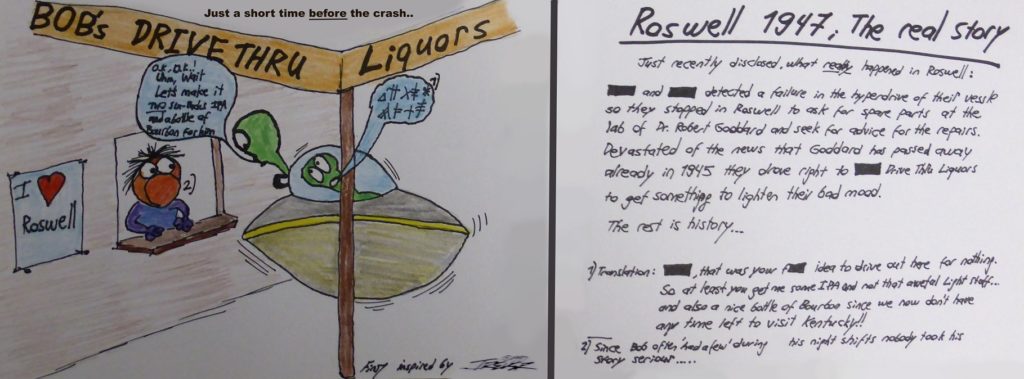 Just a short time before the crash..
BOB's DRIVE THRU Liquors
O.K., O.K..!
Uhm, Wait
Let's make it
two six-packs IPA
and a bottle of
Bourbon for him
1)
2)
I ♥
Roswell
inspired by
Roswell 1947; The real story
Just recently disclosed, what really happened in Roswell:
and detected a failure in the hyperdrive of their vessle
so they stopped in Roswell to ask for spare parts at the
lab of Dr. Robert Goddard and seek for advice for the repairs.
Devastated of the news that Goddard has passed away
already in 1945 they drove right to Drive Thru Liquors
to get something to lighten their bad mood.
The rest is history...
1) Translation: , that was your f idea to drive out here for nothing.
So at least you get me some IPA and not that awefal Light stuff...
and also a nice bottle of Bourbon since we now don't have
any time left to visit Kentucky!!
2) Since Bob often 'had a few' during his night shifts nobody took his
story serious.....